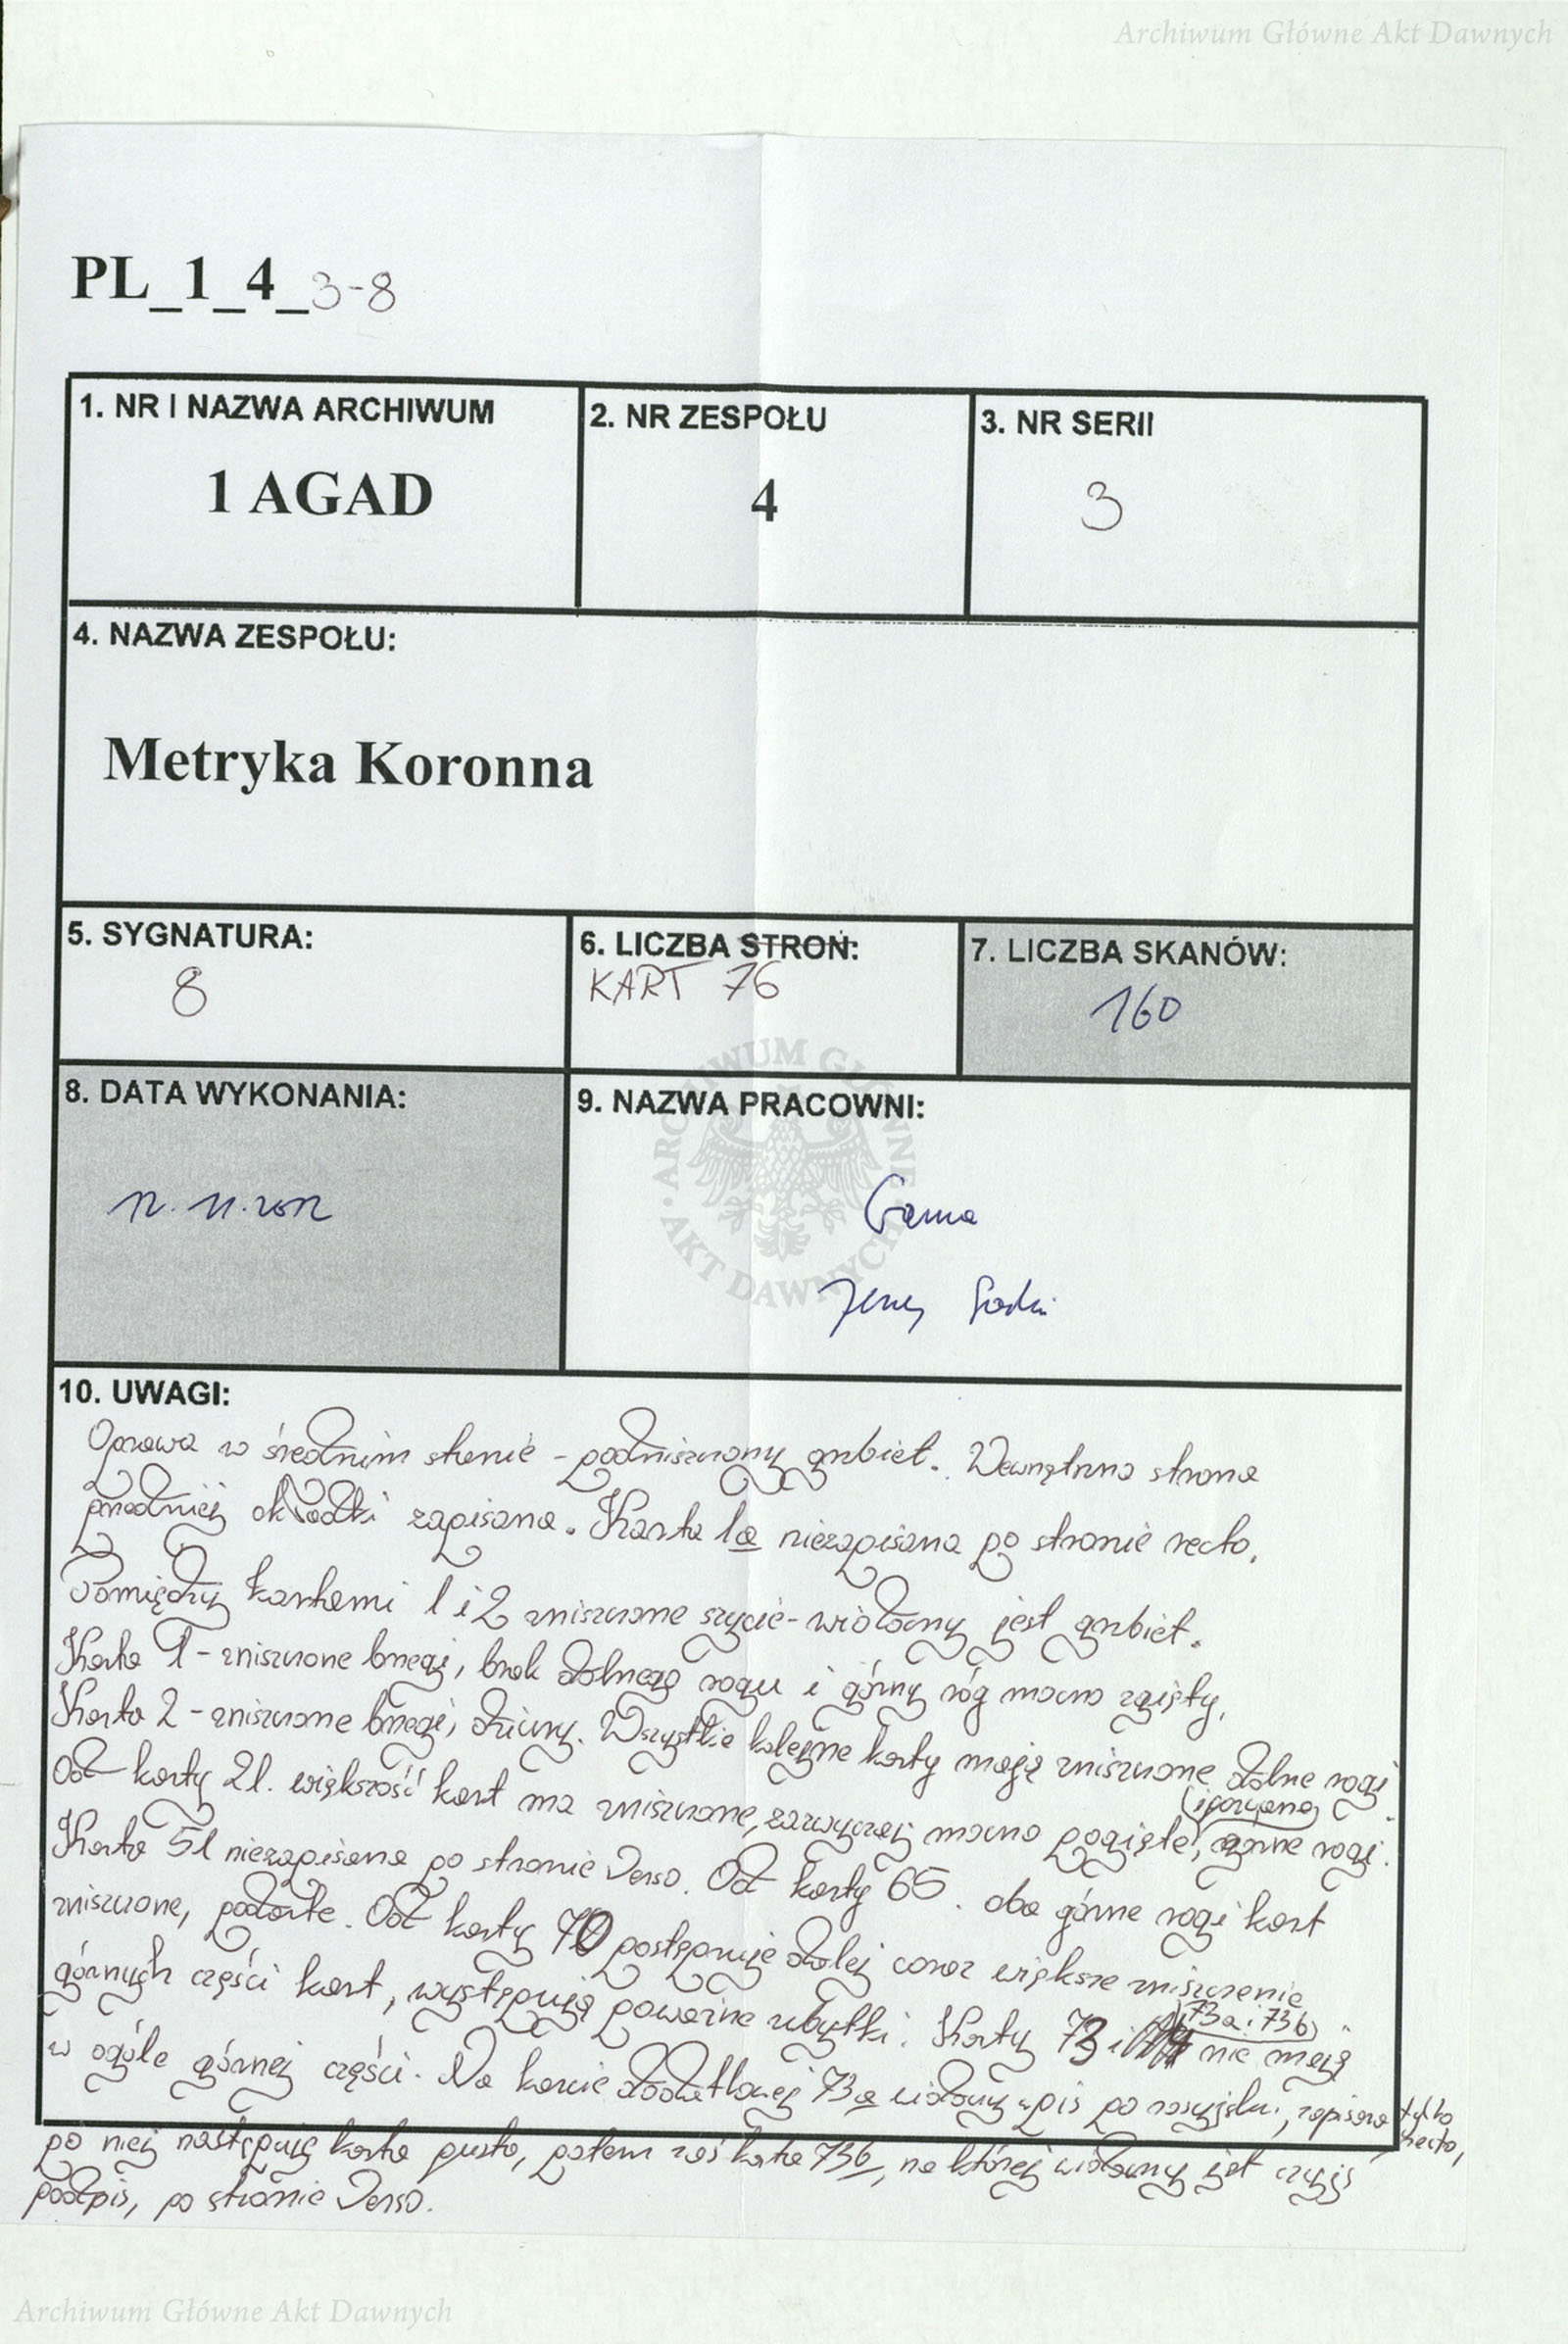 Archiwum Główne Akt Dawnych
PL_1_4_3-8
1. NR I NAZWA ARCHIWUM
1 AGAD
2. NR ZESPOŁU
4
3. NR SERII
3
4. NAZWA ZESPOŁU:
Metryka Koronna
5. SYGNATURA:
8
6. LICZBA STRON:
KART 76
7. LICZBA SKANÓW:
160
8. DATA WYKONANIA:
12.11.2012
9. NAZWA PRACOWNI:
ARCHIWUM GŁÓWNE AKT DAWNYCH
Jerzy
10. UWAGI:
Oprawa w średnim stanie - podniszczony grzbiet. Wewnętrzna strona
przedniej okładki zapisana. Karta 1a niezapisana po stronie recto.
Pomiędzy kartami 1 i 2 zniszczone szycie - widoczny jest grzbiet.
Karta 1 - zniszczone brzegi, brak dolnego rogu i górny róg mocno zgięty.
Karta 2 - zniszczone brzegi, dziury. Wszystkie kolejne karty mają zniszczone dolne rogi.
Od karty 21. większość kart ma zniszczone, zazwyczaj mocno pogięte, górne rogi.
Karta 51 niezapisana po stronie verso. Od karty 65. oba górne rogi kart
zniszczone, podarte. Od karty 70 postępuje dalej coraz większe zniszczenie
górnych części kart, występują poważne ubytki. Karty 73 i (73a i 73b) nie mają
w ogóle górnej części. Na karcie dodatkowej 73a widoczny wpis po rosyjsku, zapisana tylko recto,
po niej następuje karta pusta, potem zaś karta 73b, na której widoczny jest czyjś
podpis, po stronie verso.
Archiwum Główne Akt Dawnych